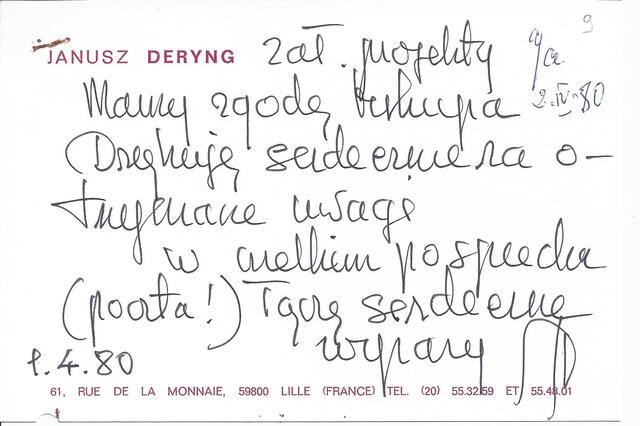 9
JANUSZ DERYNG zał. projekty
2.IV.80
Mamy zgodę biskupa
Dziękuję serdecznie za o-
trzymane uwagi
w wielkim pospiechu
(poczta!) Łączę serdeczne
wyrazy
1.4.80
61, RUE DE LA MONNAIE, 59800 LILLE (FRANCE) TEL. (20) 55.32.59 ET 55.48.01